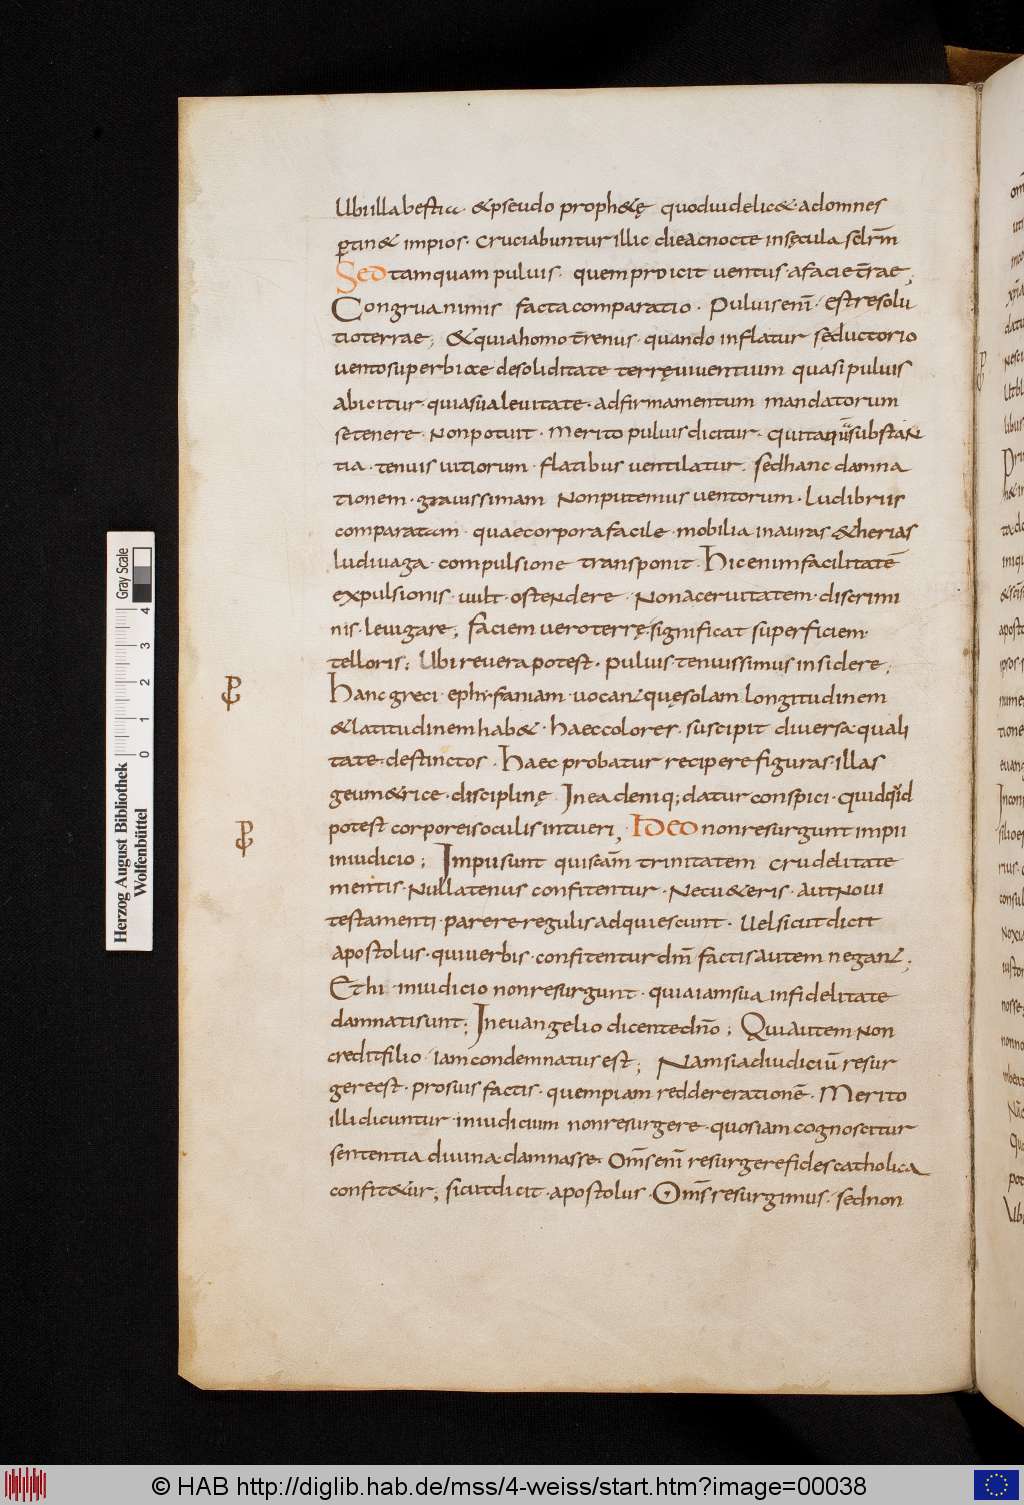 Ubi illa bestia · & pseudo proph&ę quod uidelic& · ad omnes
ꝑtin& impios · cruciabuntur illic die ac nocte in sęcula sclꝝ̄m
Sed tamquam puluis · quem proicit uentus a facie t̄rae ;
Congrua nimis facta comparatio · Puluis enī · est resolu
tio terrae ; & quia homo t̄renus · quando inflatur seductorio
uento superbiae de soliditate terrę uiuentium quasi puluis
abicitur · quia sua leuitate · ad firmamentum mandatorum
se tenere · Non potuit · Merito puluis dicitur · qui
tia · tenuis uitiorum · flatibus uentilatur · sed hanc damna
tionem · grauissimam Non putemus uentorum · Ludibriis
comparatam · quae corpora facile · mobilia in auras & herias
ludiuaga · compulsione transponit · Hic enim facilitatē
expulsionis · uult · ostendere · Non aceruitatem · discrimi
nis · leuigare ; faciem uero terrę · significat superficiem ·
telloris ; Ubi reuera potest · puluis · tenuissimus insidere ;
Hanc greci · ephyfaniam · uocant quę solam longitudinem
& latitudinem hab& · haec colores · suscipit diuersa quali
tate · destinctos · Haec probatur recipere figuras · illas
geum&rice · disciplinę In ea deniq; datur conspici · quidqd
potest corporeis oculis intueri ; Ideo non resurgunt impii
in iudicio ; Impii sunt qui scām trinitatem crudelitate
mentis · Nullatenus confitentur · Nec u&eris · aut Noui
testamenti · parere regulis adquiescunt · Uel sicut dicit
apostolus · qui uerbis · confitentur dm̄ factis autem negant ;
Et hi in iudicio non resurgunt · quia iam sua infidelitate
damnati sunt ; In euangelio dicente dn̄o ; Qui autem Non
credit filio · iam condemnatus est ; Nam si ad iudiciū resur
gere est · prosuis factis · quempiam reddere rationē · Merito
illi dicuntur · in iudicium non resurgere · quos iam cognoscitur
sententia diuina damnasse · Om̄s enī resurgere fides catholica
confit&ur ; sicut dicit · apostolus · Om̄s resurgimus · sed non
Gray Scale
4 3 2 1 0
Herzog August Bibliothek
Wolfenbüttel
© HAB http://diglib.hab.de/mss/4-weiss/start.htm?image=00038